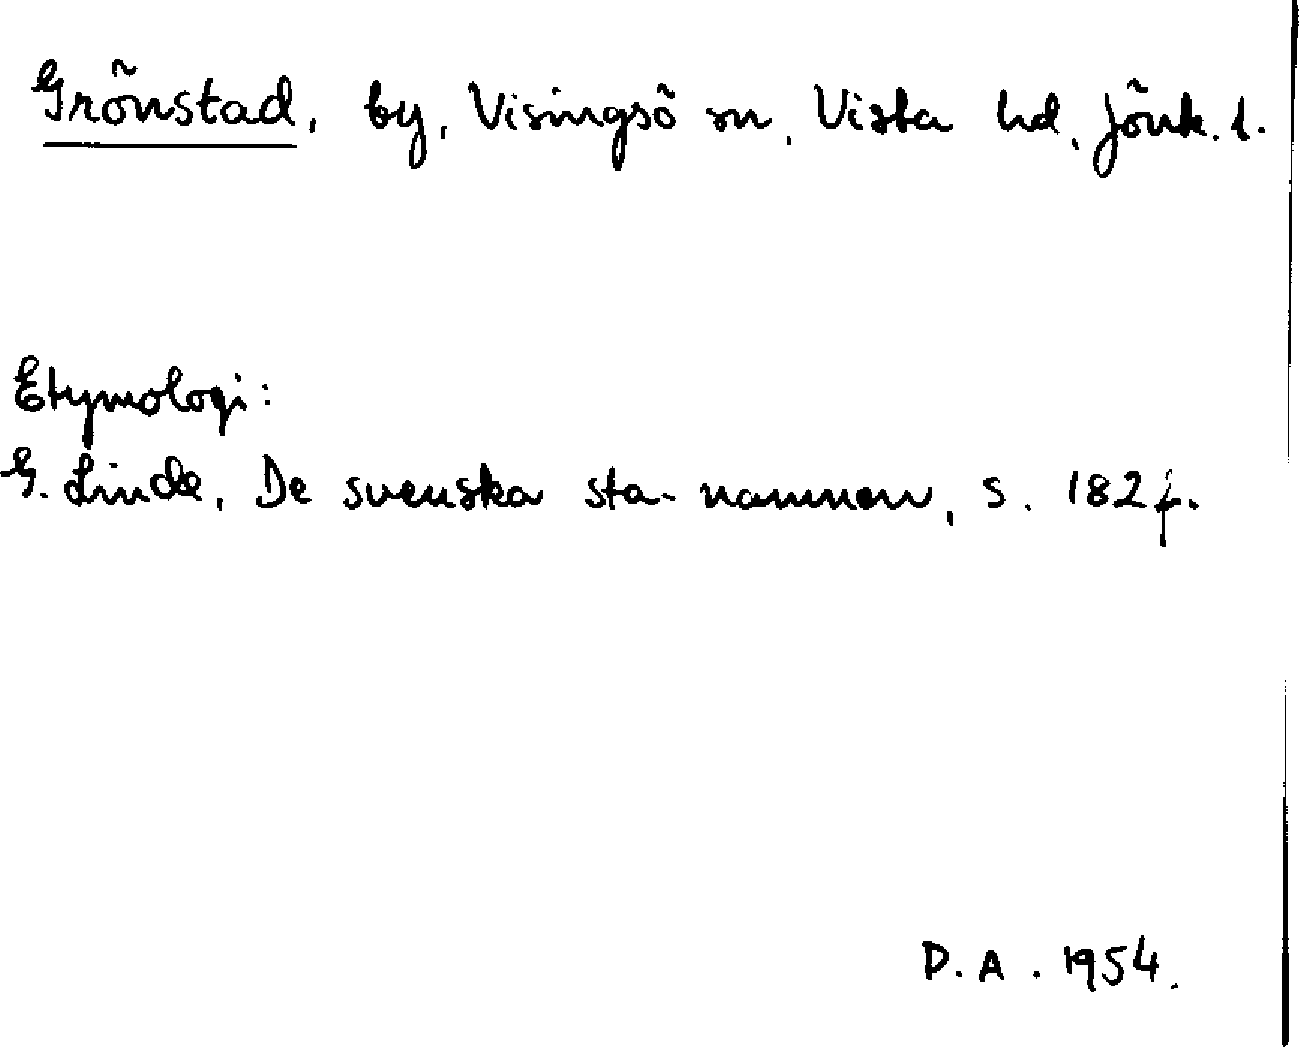 Grönstad, by, Visingsö sn, Vista hd, Jönk. l.
Etymologi:
G. Linde, De svenska sta-namnen, s. 182 f.
D. A. 1954.